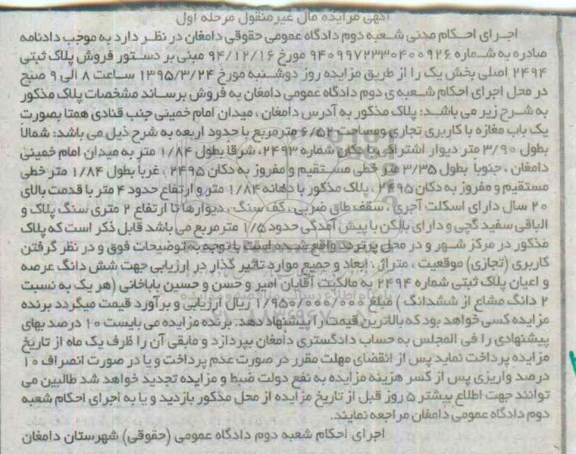 آگهی مزایده مال غیرمنقول مرحله اول
اجرای احکام مدنی شعبه دوم دادگاه عمومی حقوقی دامغان در نظر دارد به موجب دادنامه
صادره به شماره ۹۴۰۹۹۷۲۳۳۰۴۰۰۹۲۶ مورخ ۹۴/۱۲/۱۶ مبنی بر دستور فروش پلاک ثبتی
۲۴۹۴ اصلی بخش یک را از طریق مزایده روز دوشنبه مورخ ۱۳۹۵/۳/۲۴ ساعت ۸ الی ۹ صبح
در محل اجرای احکام شعبه ی دوم دادگاه عمومی دامغان به فروش برساند مشخصات پلاک مذکور
به شرح زیر می باشد: پلاک مذکور به آدرس دامغان ، میدان امام خمینی جنب قنادی همتا بصورت
یک باب مغازه با کاربری تجاری ومساحت ۶/۵۲ مترمربع با حدود اربعه به شرح ذیل می باشد: شمالاً
بطول ۳/۹۰ متر دیوار اشتراکی با دکان شماره ۲۴۹۳، شرقا بطول ۱/۸۴ متر به میدان امام خمینی
دامغان ، جنوبا بطول ۳/۳۵ متر خطی مستقیم و مفروز به دکان ۲۴۹۵ ، غربا بطول ۱/۸۴ متر خطی
مستقیم و مفروز به دکان ۲۴۹۵ ، پلاک مذکور با دهانه ۱/۸۴ متر و ارتفاع حدود ۴ متر با قدمت بالای
۲۰ سال دارای اسکلت آجری ، سقف طاق ضربی ، کف سنگ ، دیوارها تا ارتفاع ۲ متری سنگ پلاک و
الباقی سفید گچی و دارای بالکن با پیش آمدگی حدود ۱/۵ مترمربع می باشد قابل ذکر است که پلاک
مذکور در مرکز شهر و در محل پرتردد واقع شده است با توجه به توضیحات فوق و در نظر گرفتن
کاربری (تجاری) موقعیت ، متراژ، ابعاد و جمیع موارد تاثیر گذار در ارزیابی جهت شش دانگ عرصه
و اعیان پلاک ثبتی شماره ۲۴۹۴ به مالکیت آقایان امیر و حسن و حسین باباخانی (هر یک به نسبت
۲ دانگ مشاع از ششدانگ ) مبلغ ۱/۹۵۰/۰۰۰/۰۰۰ ریال ارزیابی و برآورد قیمت میگردد برنده
مزایده کسی خواهد بود که بالاترین قیمت را پیشنهاد دهد. برنده مزایده می بایست ۱۰ درصد بهای
پیشنهادی را فی المجلس به حساب دادگستری دامغان بپردازد و مابقی آن را ظرف یک ماه از تاریخ
مزایده پرداخت نماید پس از انقضای مهلت مقرر در صورت عدم پرداخت و یا در صورت انصراف ۱۰
درصد واریزی پس از کسر هزینه مزایده به نفع دولت ضبط و مزایده تجدید خواهد شد طالبین می
توانند جهت اطلاع بیشتر ۵ روز قبل از تاریخ مزایده از محل مذکور بازدید و یا به اجرای احکام شعبه
دوم دادگاه عمومی دامغان مراجعه نمایند.
اجرای احکام شعبه دوم دادگاه عمومی (حقوقی) شهرستان دامغان